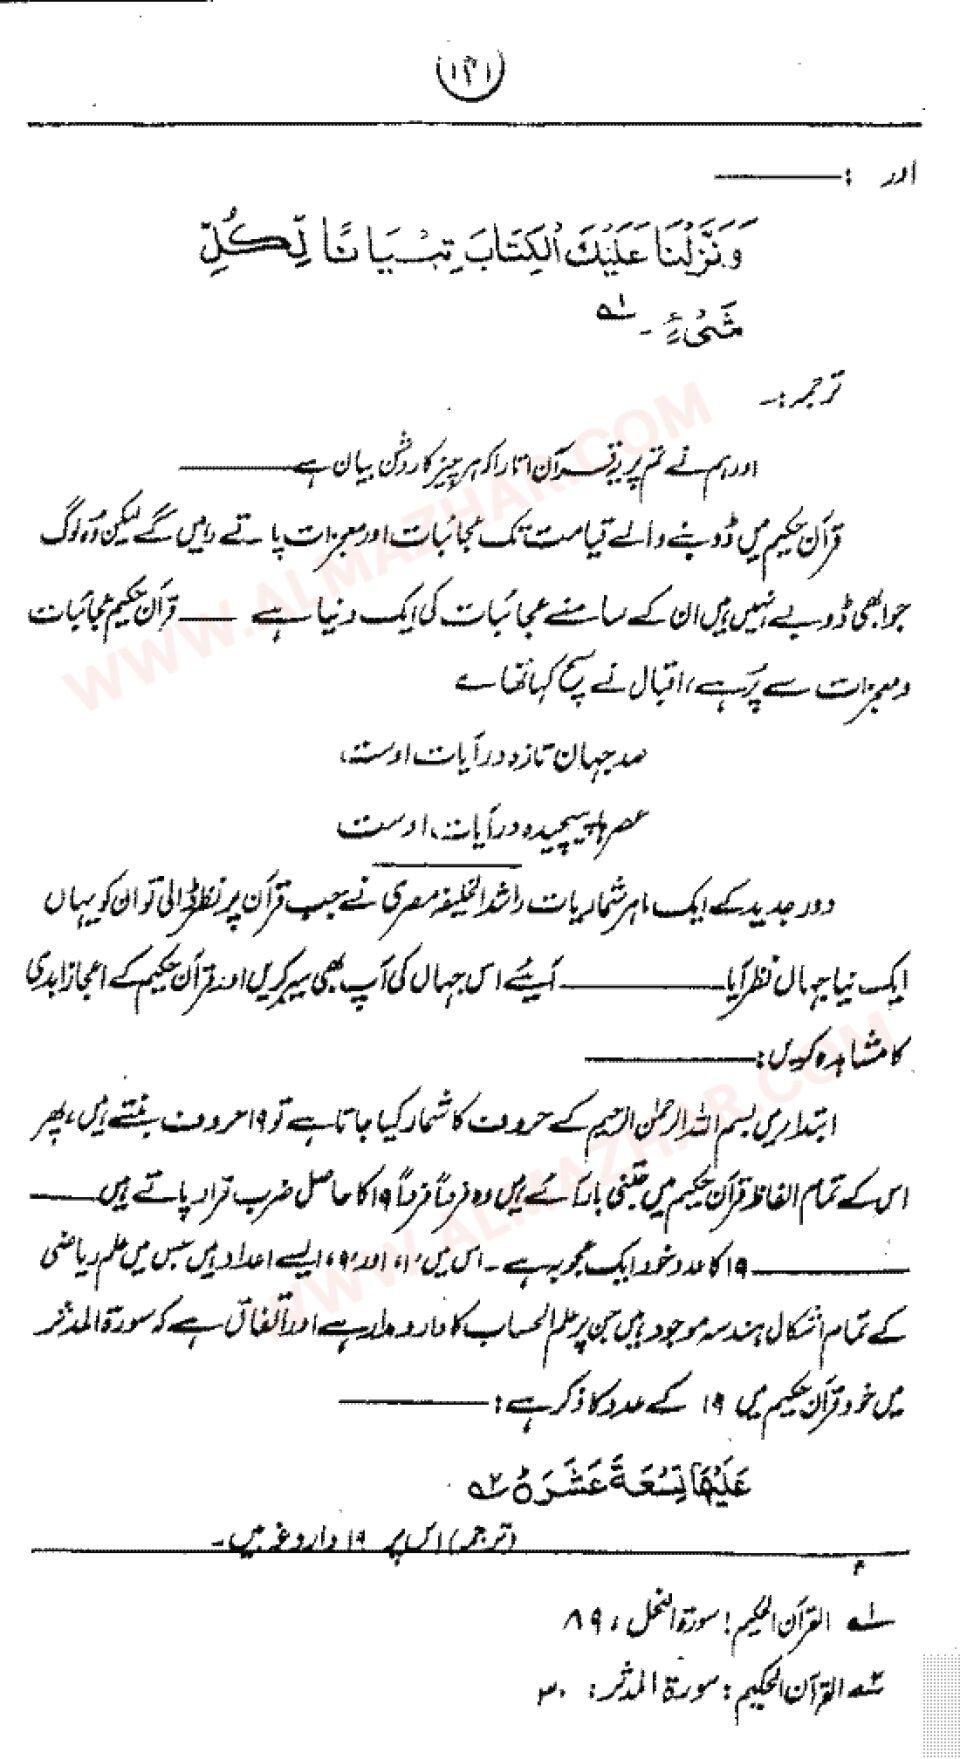 ۱۴۱
اور :
وَنَزَّلْنَا عَلَيْكَ الْكِتَابَ تِبْيَانًا لِّكُلِّ
شَیْءٍ ۔ ۱؎
ترجمہ:۔
اور ہم نے تم پر یہ قرآن اتارا کہ ہر چیز کا روشن بیان ہے
قرآن حکیم میں ڈوبنے والے قیامت تک عجائبات اور معجزات پاتے رہیں گے لیکن وہ لوگ
جو ابھی ڈوبے نہیں ہیں ان کے سامنے عجائبات کی ایک دنیا ہے ـــ قرآن حکیم عجائبات
و معجزات سے پُر ہے، اقبال نے سچ کہا تھا ؎
صد جہان تازہ در آیات اوست،
عصر ہا پیچیدہ در آیات اوست
دور جدید کے ایک ماہر شماریات راشد الخلیفہ مصری نے جب قرآن پر نظر ڈالی تو ان کو یہاں
ایک نیا جہاں نظر آیا ـــ آیئے اس جہاں کی آپ بھی سیر کریں اور قرآن حکیم کے اعجاز ابدی
کا مشاہدہ کریں:
ابتدا میں بسم اللہ الرحمٰن الرحیم کے حروف کا شمار کیا جاتا ہے تو ۱۹ حروف بنتے ہیں، پھر
اس کے تمام الفاظ قرآن حکیم میں جتنی بار آئے ہیں وہ فرداً فرداً ۱۹ کا حاصل ضرب قرار پاتے ہیں
ـــ ۱۹ کا عدد خود ایک عجوبہ ہے ۔ اس میں '۱' اور '۹' ایسے اعداد ہیں جس میں علم ریاضی
کے تمام اشکال ہندسہ موجود ہیں جن پر علم الحساب کا دارومدار ہے اور اتفاق ہے کہ سورۃ المدثر
میں خود قرآن حکیم میں ۱۹ کے عدد کا ذکر ہے:
عَلَيْهَا تِسْعَةَ عَشَرَ ہ ۲؎
(ترجمہ) اس پر ۱۹ داروغہ ہیں۔
۱؎ القرآن الحکیم: سورۃ النحل ، ۸۹
۲؎ القرآن الحکیم: سورۃ المدثر: ۳۰
WWW.ALMAZHAR.COM
WWW.ALMAZHAR.COM